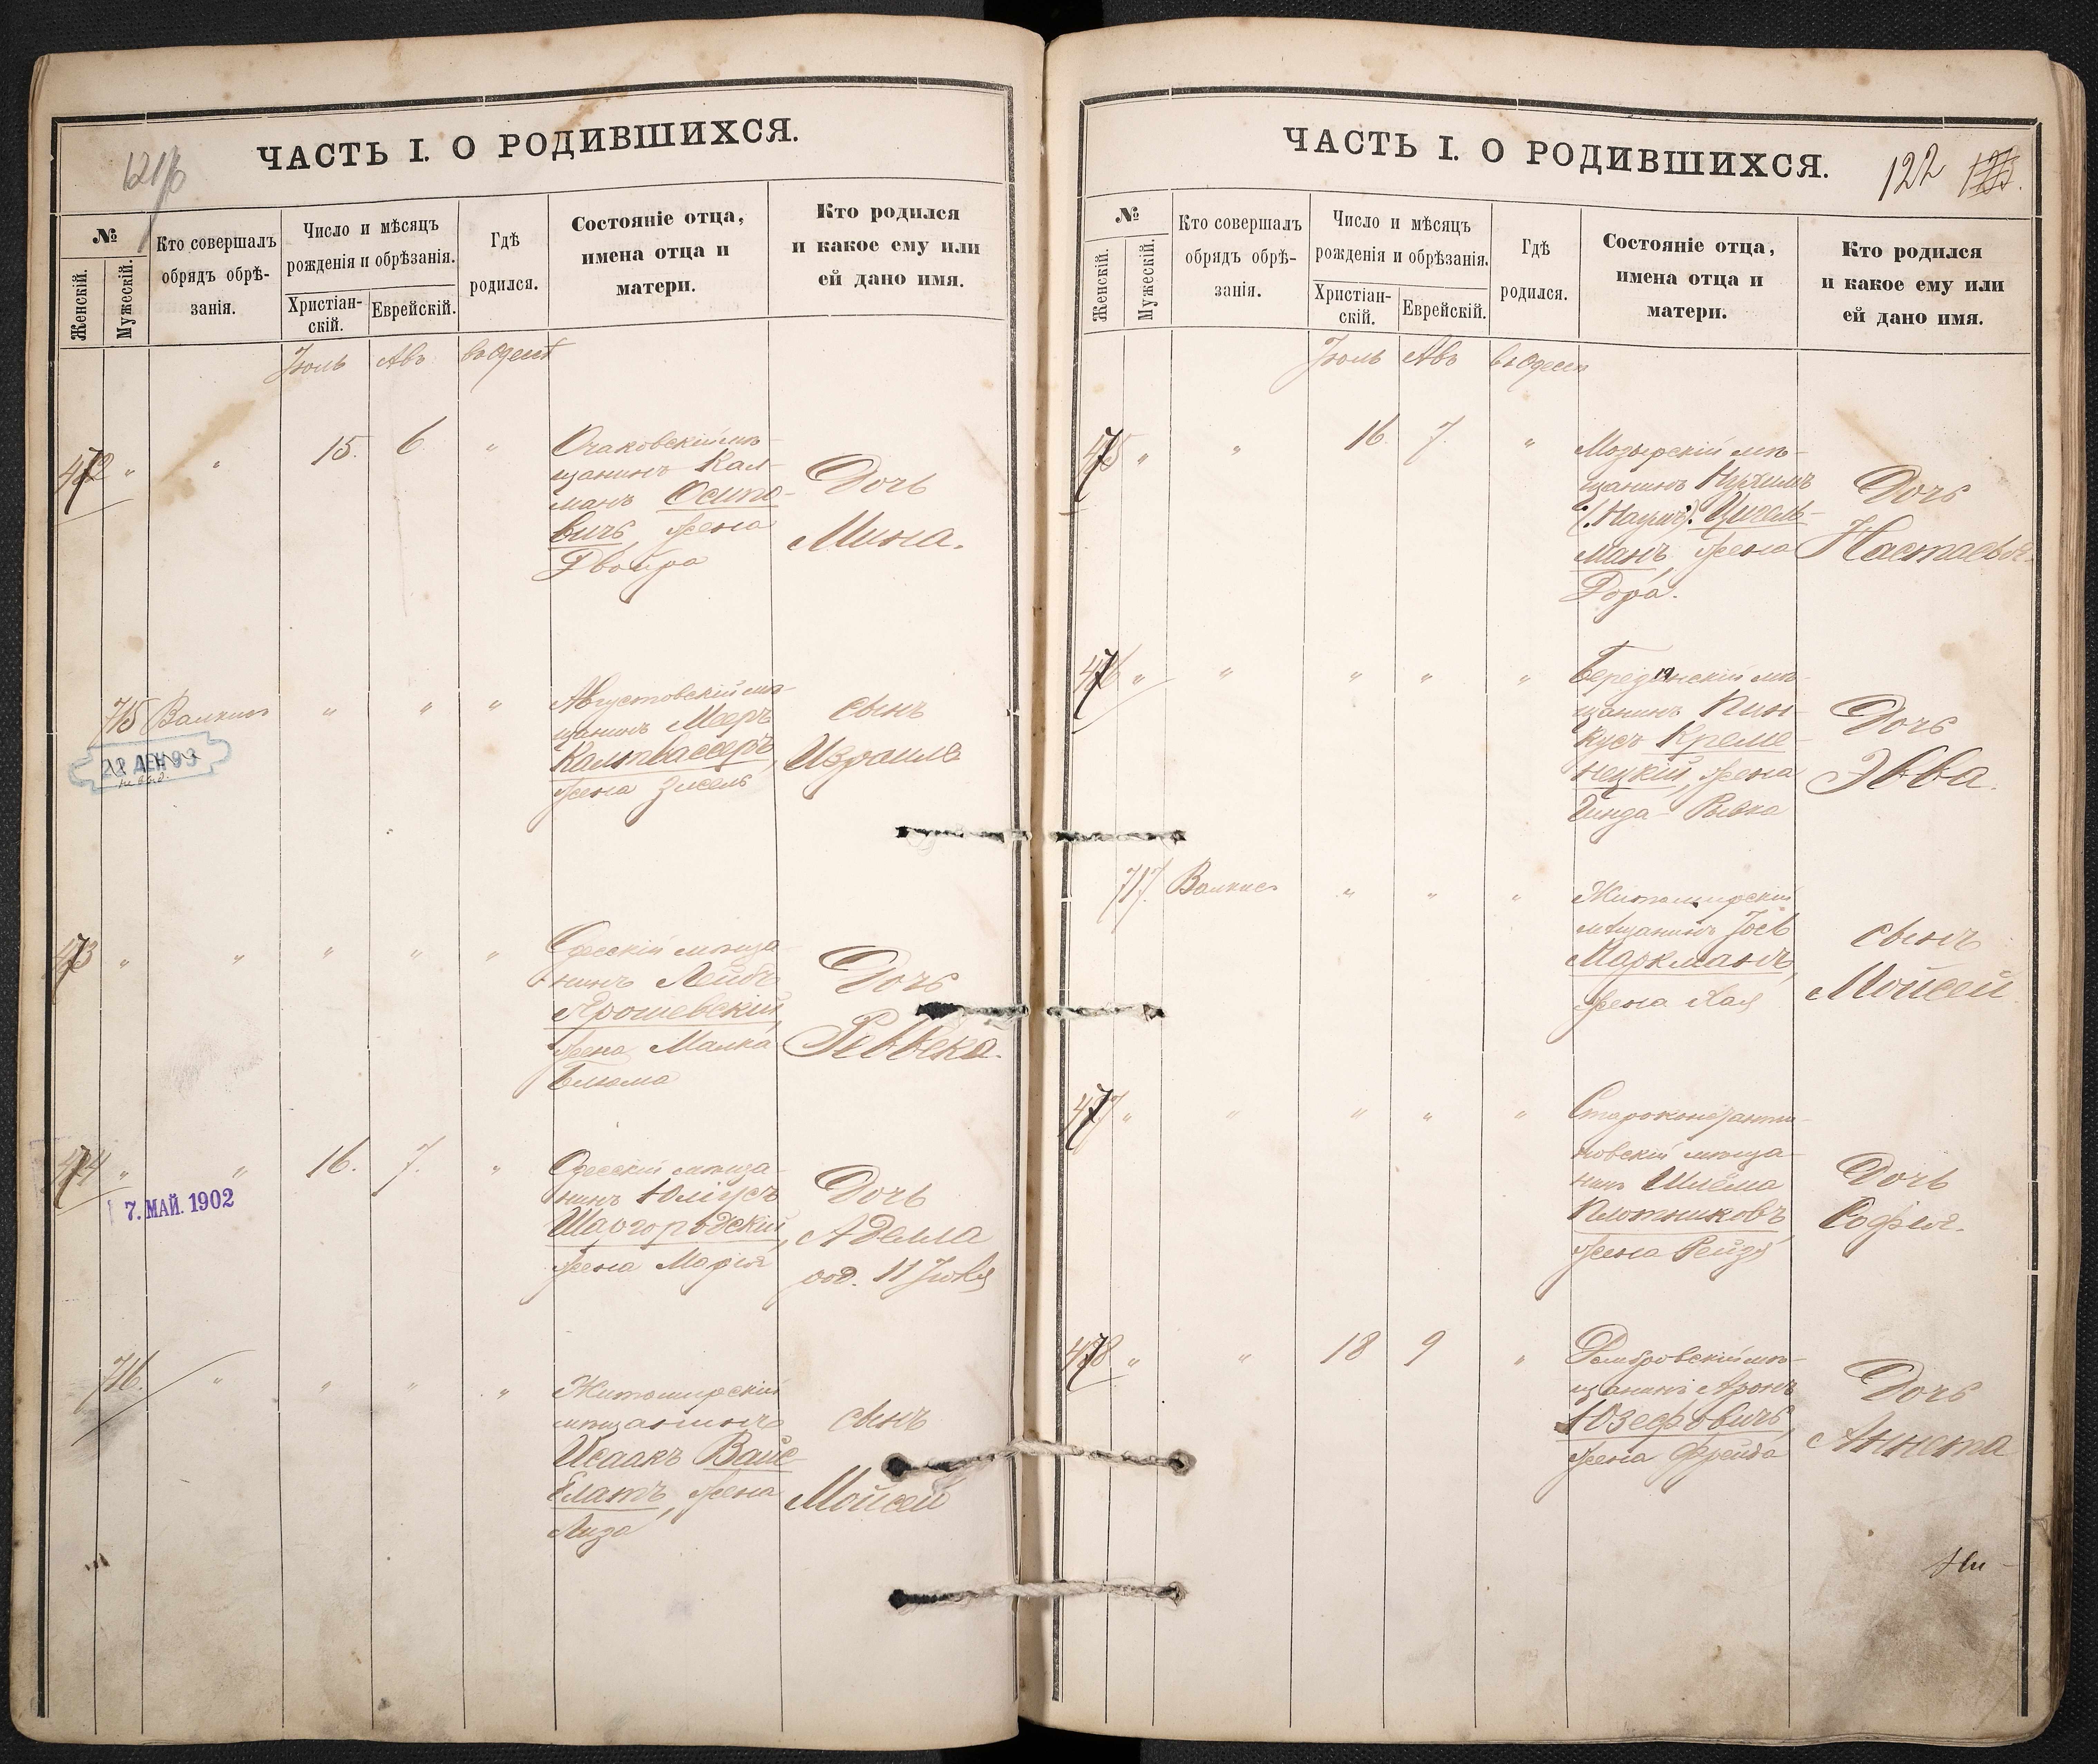 ЧАСТЬ I. О РОДИВШИХСЯ.
№
Женскій.
Мужескій.
Кто совершалъ
обрядъ обрѣ-
занія.
Число и мѣсяцъ
рожденія и обрѣзанія.
Христіан-
скій.
Еврейскій.
Гдѣ
родился.
Состояніе отца,
имена отца и
матери.
Кто родился
и какое ему или
ей дано имя.
Іюль Авъ въ Одессѣ
472 " " 15. 6 "
Очаковскій мѣ-
щанинъ Кал-
манъ Осипо-
вичъ, жена
Двойра
Дочь
Мина.
715 Валкисъ " " "
Августовскій мѣ-
щанинъ Мееръ
Кальтвассеръ,
жена Зисель
сынъ
Израиль
22 ДЕК 93
473 " " " " "
Одесскій мѣща-
нинъ Лейбъ
Ярошевскій,
жена Малка
Блюма
Дочь
Ревекка.
474 " " 16. 7. "
7. МАЙ. 1902
Одесскій мѣща-
нинъ Юліусъ
Шаргородскій,
жена Марія
Дочь
Аделла
род. 11 Іюля
716. " " " "
Житомирскій
мѣщанинъ
Исаакъ Вайс-
блатъ, жена
Лиза
сынъ
Мойсей
ЧАСТЬ I. О РОДИВШИХСЯ.
122
№
Женскій.
Мужескій.
Кто совершалъ
обрядъ обрѣ-
занія.
Число и мѣсяцъ
рожденія и обрѣзанія.
Христіан-
скій.
Еврейскій.
Гдѣ
родился.
Состояніе отца,
имена отца и
матери.
Кто родился
и какое ему или
ей дано имя.
Іюль Авъ въ Одессѣ
475 " " 16 7. "
Мозырскій мѣ-
щанинъ Нухимъ
(Наумъ) Цигель-
манъ, жена
Дора.
Дочь
Настасья.
476 " " " " "
Бердянскій мѣ-
щанинъ Пин-
кусъ Креме-
нецкій, жена
Гинда-Рывка
Дочь
Эвва.
717. Валкисъ " " "
Житомирскій
мѣщанинъ Іось
Маркманъ,
жена Хая
сынъ
Мойсей
477 " " " " "
Староконстанти-
новскій мѣща-
нинъ Шлема
Плотниковъ,
жена Рейзя
Дочь
Софія.
478 " " 18 9 "
Домбровскій мѣ-
щанинъ Аронъ
Юзефовичъ,
жена Фрейда
Дочь
Аннета